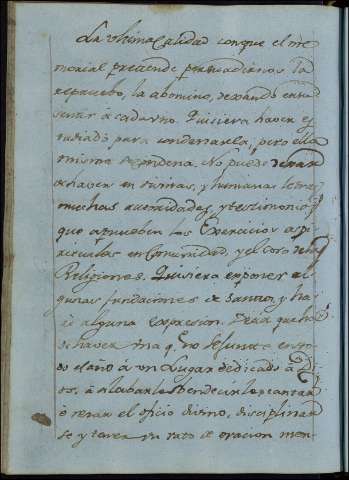 La ultima Calidad conque el me-
morial pretende persuadirnos la
repruebo, la abomino, dexando en su
sentir à cada vno. Quisiera haver es
tudiado para condenarla, pero ella
misma se condena. No puedo dexar
de haver en divinas, y humanas letras
muchas autoridades, y testimonios
que aprueben los Exercicios espi
rituales en Comunidad, y el coro de las
Religiones. Quisiera exponer al
gunas fundaciones de Santos, y ha
ré alguna expresion. Dirà que ha
de haver vna qe. no se junte en to-
do el año à un Lugar dedicado à Di
os, à alabarle, bendecirle, cantar
ò rezar el oficio divino, disciplinar
se y tener su rato de oracion men-